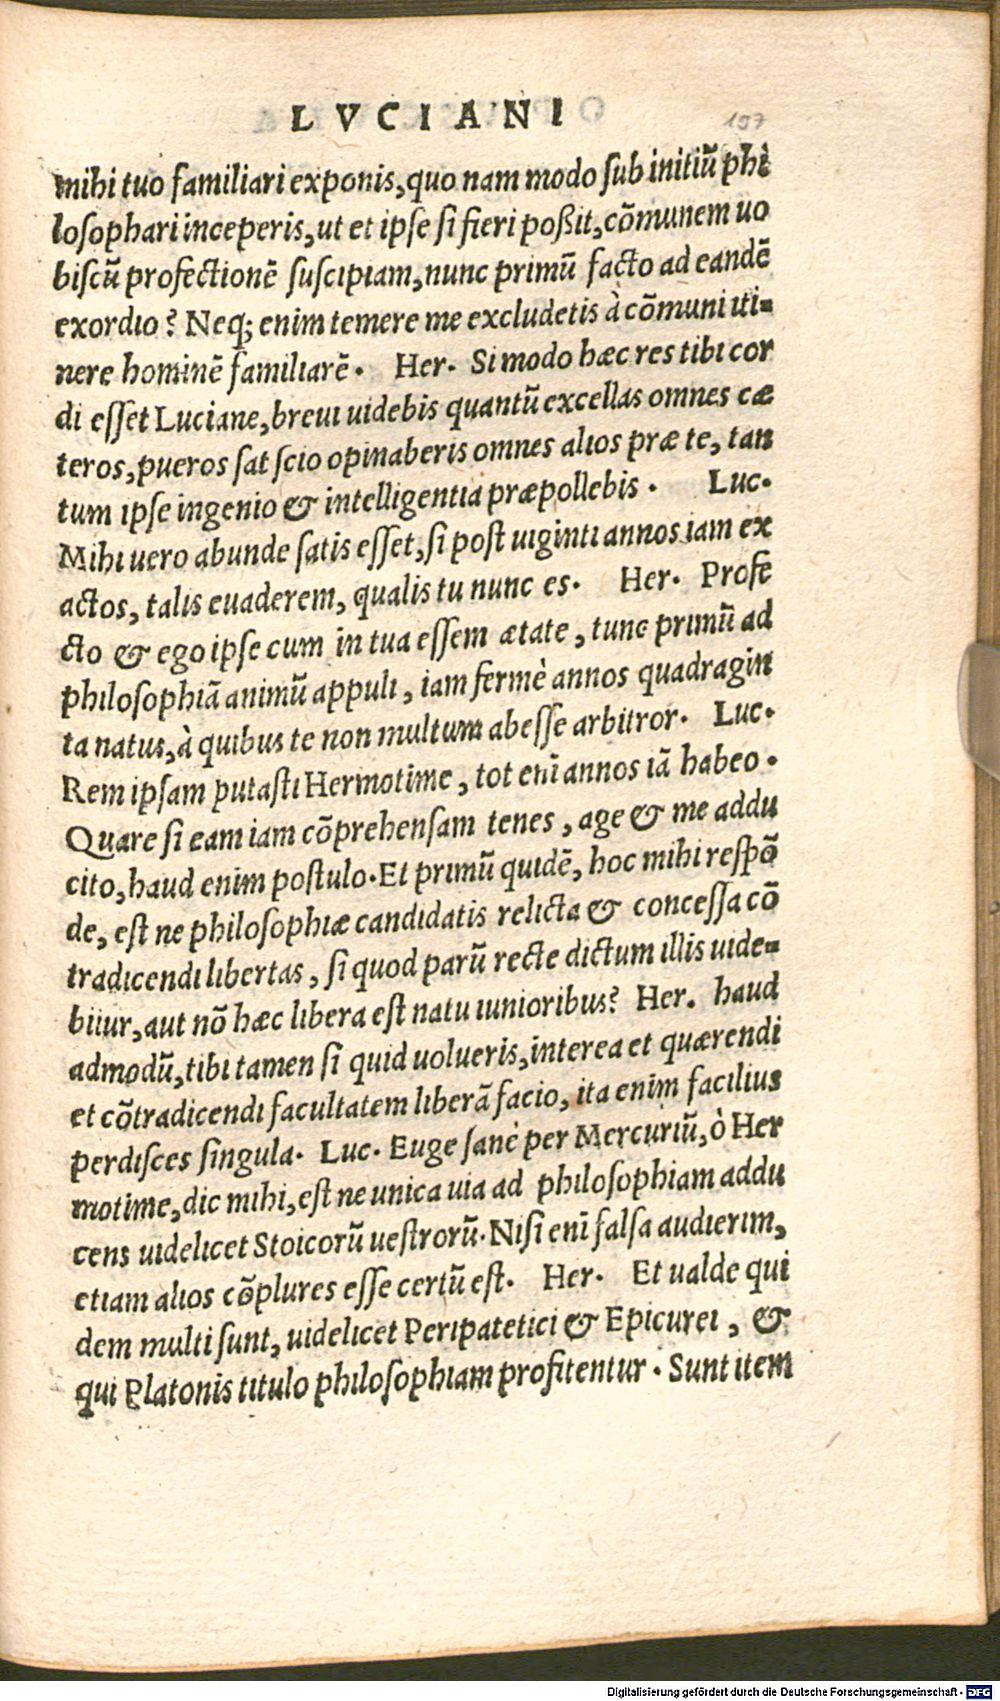 LVCIANI
197
mihi tuo familiari exponis, quo nam modo sub initiũ phi
losophari inceperis, ut et ipse si fieri poßit, cõmunem uo
biscũ profectionẽ suscipiam, nunc primũ facto ad eandẽ
exordio? Neq; enim temere me excludetis à cõmuni iti-
nere hominẽ familiarẽ. Her. Si modo hæc res tibi cor
di esset Luciane, breui uidebis quantũ excellas omnes cæ
teros, pueros sat scio opinaberis omnes alios præ te, tan
tum ipse ingenio & intelligentia præpollebis. Luc.
Mihi uero abunde satis esset, si post uiginti annos iam ex
actos, talis euaderem, qualis tu nunc es. Her. Profe
cto & ego ipse cum in tua essem ætate, tunc primũ ad
philosophiã animũ appuli, iam fermè annos quadragin
ta natus, à quibus te non multum abesse arbitror. Luc.
Rem ipsam putasti Hermotime, tot enĩ annos iã habeo.
Quare si eam iam cõprehensam tenes, age & me addu
cito, haud enim postulo. Et primũ quidẽ, hoc mihi respõ
de, est ne philosophiæ candidatis relicta & concessa cõ
tradicendi libertas, si quod parũ recte dictum illis uide-
bitur, aut nõ hæc libera est natu iunioribus? Her. haud
admodũ, tibi tamen si quid uolueris, interea et quærendi
et cõtradicendi facultatem liberã facio, ita enim facilius
perdisces singula. Luc. Euge sanè per Mercuriũ, ò Her
motime, dic mihi, est ne unica uia ad philosophiam addu
cens uidelicet Stoicorũ uestrorũ. Nisi enĩ falsa audierim,
etiam alios cõplures esse certũ est. Her. Et ualde qui
dem multi sunt, uidelicet Peripatetici & Epicurei, &
qui Platonis titulo philosophiam profitentur. Sunt item
Digitalisierung gefördert durch die Deutsche Forschungsgemeinschaft - DFG